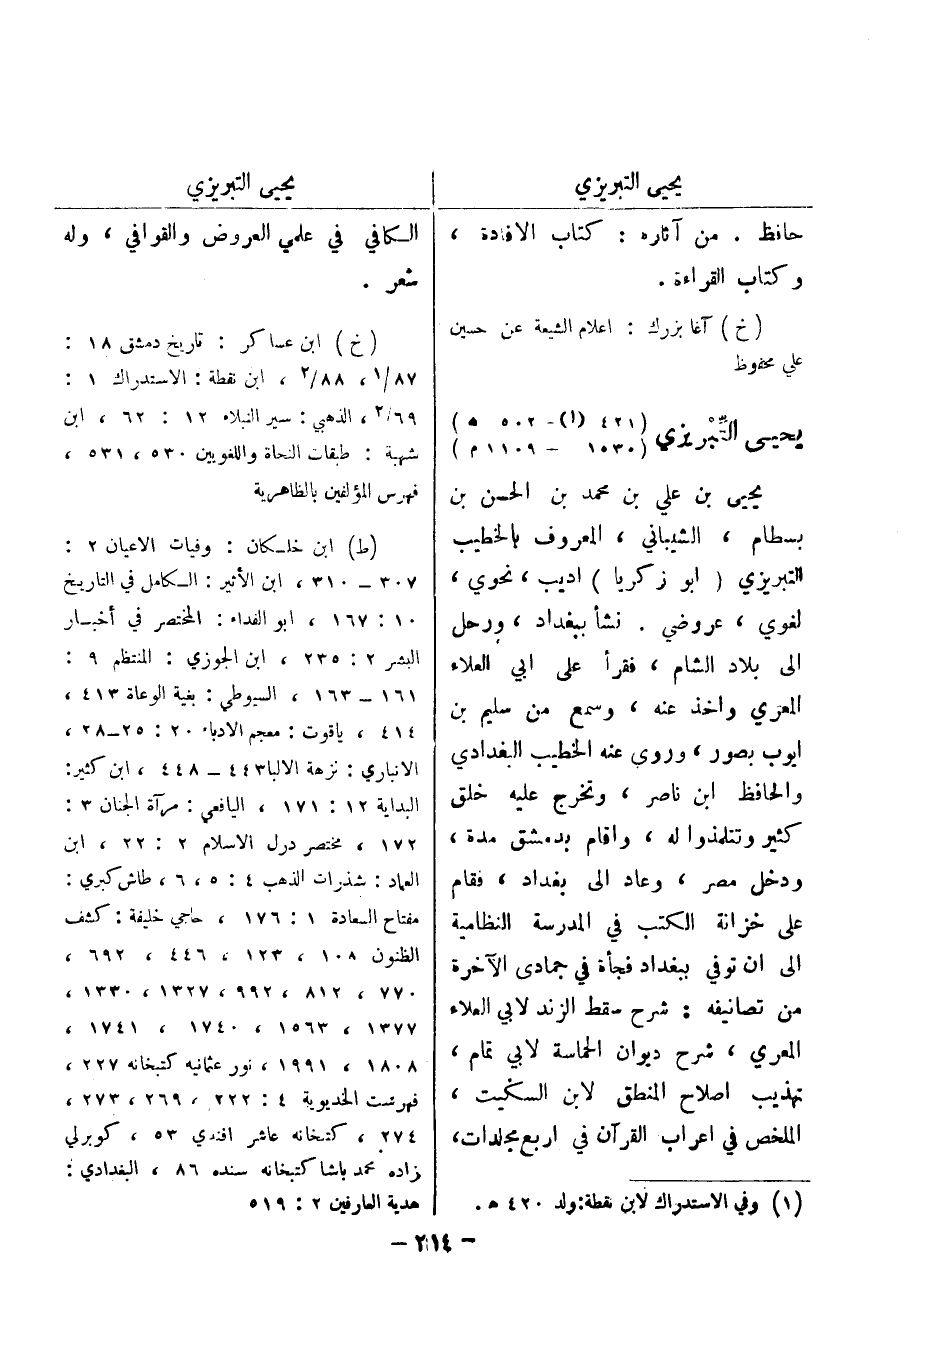 يحيى التبريزي
حافظ . من آثاره : كتاب الافادة ،
وكتاب القراءة .
(خ) آغا بزرك : اعلام الشيعة عن حسين
علي محفوظ
يحيى التِّبْريزي (٤٢١ (١) - ٥٠٢ ه)
(١٠٣٠ - ١١٠٩ م)
يحيى بن علي بن محمد بن الحسن بن
بسطام ، الشيباني ، المعروف بالخطيب
التبريزي ( ابو زكريا ) اديب ، نحوي ،
لغوي ، عروضي . نشأ ببغداد ، ورحل
الى بلاد الشام ، فقرأ على ابي العلاء
المعري واخذ عنه ، وسمع من سليم بن
ايوب بصور ، وروى عنه الخطيب البغدادي
والحافظ ابن ناصر ، وتخرج عليه خلق
كثير وتتلمذوا له ، واقام بدمشق مدة ،
ودخل مصر ، وعاد الى بغداد ، فقام
على خزانة الكتب في المدرسة النظامية
الى ان توفي ببغداد فجأة في جمادى الآخرة
من تصانيفه : شرح سقط الزند لابي العلاء
المعري ، شرح ديوان الحماسة لابي تمام ،
تهذيب اصلاح المنطق لابن السكيت ،
الملخص في اعراب القرآن في اربع مجلدات،
(١) وفي الاستدراك لابن نقطة:ولد ٤٢٠ ه .
يحيى التبريزي
الكافي في علمي العروض والقوافي ، وله
شعر .
(خ) ابن عساكر : تاريخ دمشق ١٨ :
١/٨٧ ، ٢/٨٨ ، ابن نقطة : الاستدراك ١ :
٢/٦٩ ، الذهبي : سير النبلاء ١٢ : ٦٢ ، ابن
شهبة : طبقات النحاة واللغويين ٥٣٠ ، ٥٣١ ،
فهرس المؤلفين بالظاهرية
(ط) ابن خلكان : وفيات الاعيان ٢ :
٣٠٧ - ٣١٠ ، ابن الأثير : الكامل في التاريخ
١٠ : ١٦٧ ، ابو الفداء : المختصر في أخبار
البشر ٢ : ٢٣٥ ، ابن الجوزي : المنتظم ٩ :
١٦١ - ١٦٣ ، السيوطي : بغية الوعاة ٤١٣ ،
٤١٤ ، ياقوت : معجم الادباء ٢٠ : ٢٥-٢٨ ،
الانباري : نزهة الالبا ٤٤٣ - ٤٤٨ ، ابن كثير:
البداية ١٢ : ١٧١ ، اليافعي : مرآة الجنان ٣ :
١٧٢ ، مختصر دول الاسلام ٢ : ٢٢ ، ابن
العماد : شذرات الذهب ٤ : ٥ ، ٦ ، طاش كبري :
مفتاح السعادة ١ : ١٧٦ ، حاجي خليفة : كشف
الظنون ١٠٨ ، ١٢٣ ، ٤٤٦ ، ٦٩٢ ،
٧٧٠ ، ٨١٢ ، ٩٩٢ ، ١٣٢٧ ، ١٣٣٠ ،
١٣٧٧ ، ١٥٦٣ ، ١٧٤٠ ، ١٧٤١ ،
١٨٠٨ ، ١٩٩١ ، نور عثمانيه كتبخانه ٢٢٧ ،
فهرست الخديوية ٤ : ٢٢٢ ، ٢٦٩ ، ٢٧٣ ،
٢٧٤ ، كتبخانه عاشر افندي ٥٣ ، كوبرلي
زاده محمد باشا كتبخانه سنده ٨٦ ، البغدادي :
هدية العارفين ٢ : ٥١٩
- ٢١٤ -